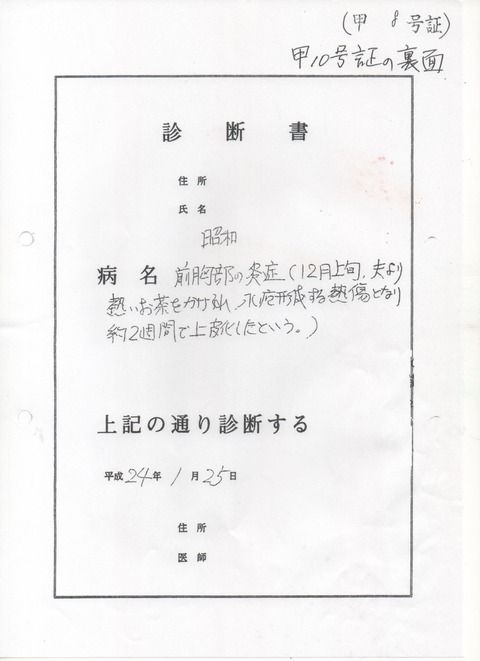 (甲 8 号証)
甲10号証の裏面
診断書
住所
氏名
昭和
病名 前胸部の炎症(12月上旬、夫より
熱いお茶をかけられ、水疱形成する熱傷となり
約2週間で上皮化したという。)
上記の通り診断する
平成24年1月25日
住所
医師